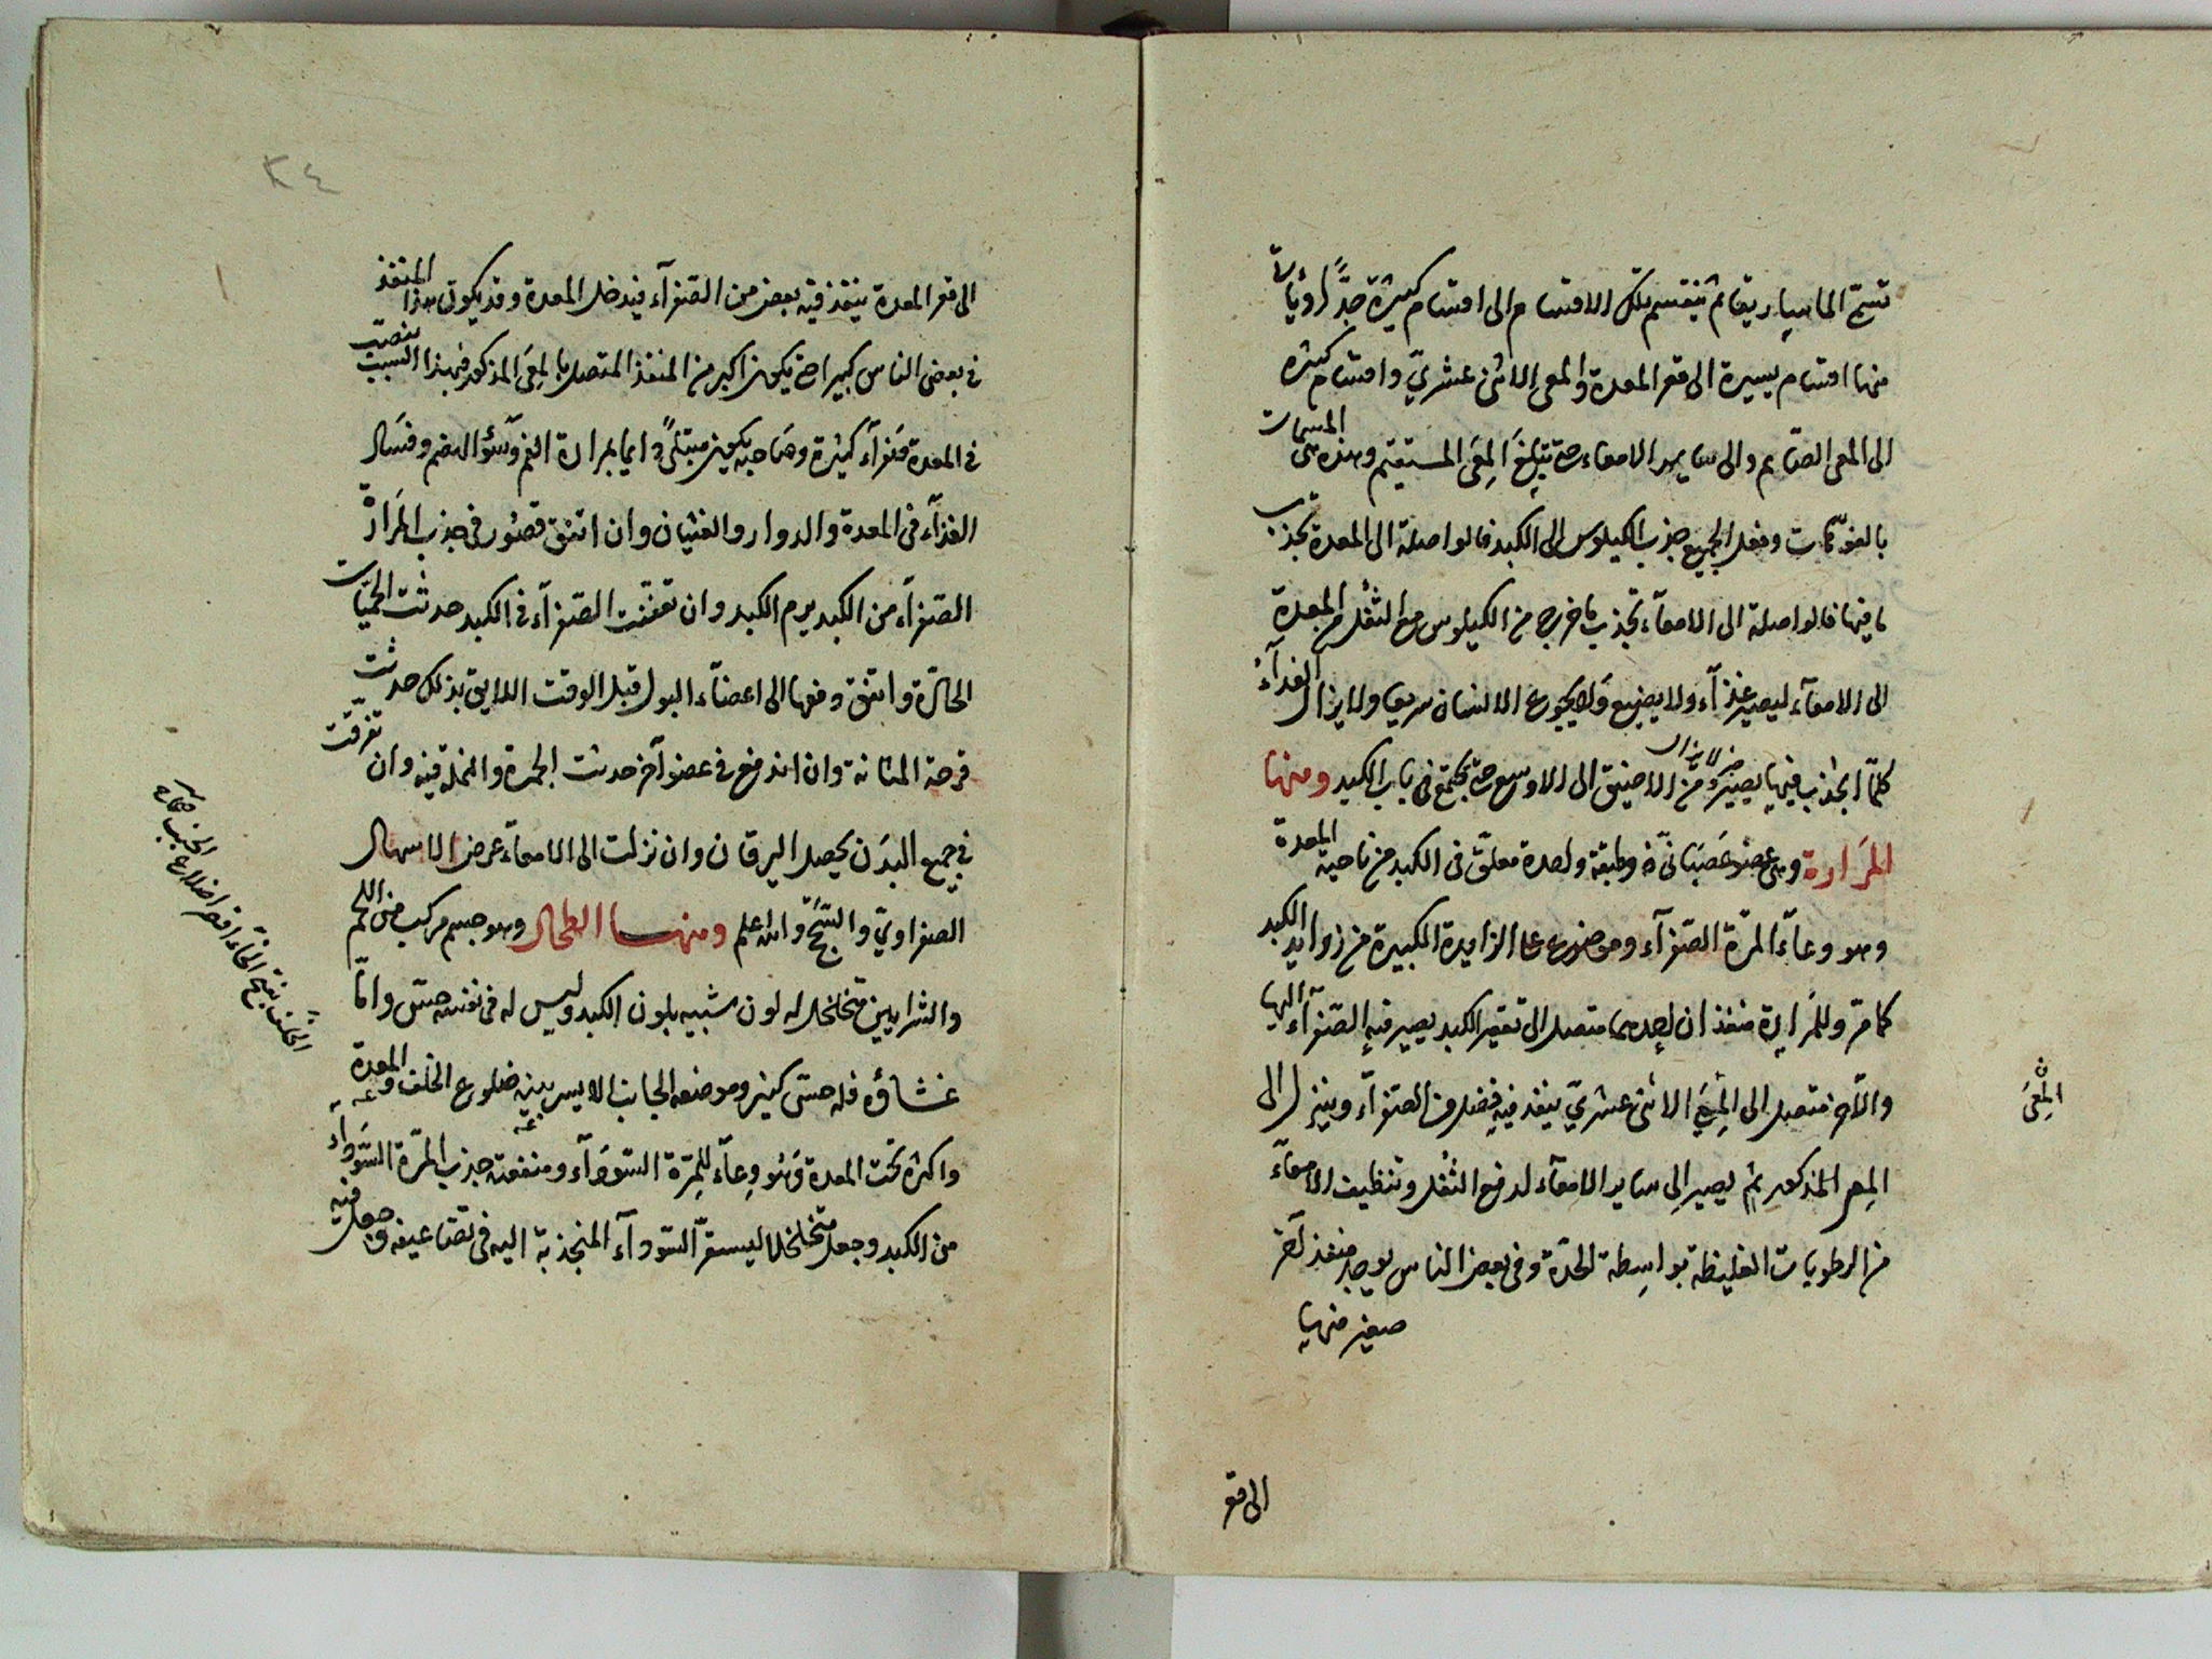 تسمّى الماساريقا ثم ينقسم تلك الاقسام الى اقسام كثيرة جدًّا
منها اقسام يسيرة الى قعر المعدة والمعى الاثنى عشرىّ واقسام كثيرة
الى المعى الصّايم والى ساير الامعاء حتى تبلغ المِعَى المستقيم وهذه هى المسمات
بالفوّهات وفعل الجميع جذب الكيلوس الى الكبد فالواصلة الى المعدة تجذب
ما فيها فالواصلة الى الامعآء تجذب ما خرج من الكيلوس مع الثفل من المعدة
الى الامعآء ليصير غذآء ولا يضيع ولا يجوع الانسان سريعا ولا يزال الغذآء
كلّما انجذب فيها يصير من الاضيق الى الاوسع حتى يجتمع فى باب الكبد ومنها
المَرَارة وهى عضو عَصَبَانىّ ذو طبقة واحدة معلّق فى الكبد من ناحية المعدة
وهو وعآء المرّة الصّفرآء وموضوع على الزايدة الكبيرة من زوايد الكبد
كما مرّ وللمَرارة منفذان احدهما متصل الى تقعير الكبد يصير فيه الصّفرآء اليها
والآخر متصل الى المِعَى الاثنى عشرىّ ينفذ فيه فضل من الصّفرآء وينزل الى
المِعى المذكور ثم يصير الى ساير الامعآء لدفع الثُفْل وتنظيف الامعآء
من الرطوبات الغليظة بواسِطة الحدّة وفى بعض الناس يوجد منفذ آخر
صغير منها
المِعَى
الى قعر
٣٤
الى قعر المعدة ينفذ فيه بعض من الصّفرآء فيدخل المعدة وقد يكون هذا المنفذ
فى بعض الناس كبيرا حتى يكون اكبر من المنفذ المتصل بالمِعَى المذكور فبهذا السبب تنصبّ
فى المعدة صَفرآء كثيرة وصَاحبه يكون مبتلىً دايما بمرارة الفم وسُوْ الهضم وفسَاد
الغذآء فى المعدة والدوار والغثيان وان اتفق قصُور فى جذب المَرَارة
الصّفرآء من الكبد يرم الكبد وان تعفّنت الصّفرآء فى الكبد حدثت الحُمّيات
الحَارّة واتفق دفعها الى اعضآء البول قبل الوقت اللايق بذلك حدثت
قرحة المثانة وان اندفع فى عضو آخر حدثت الحمرة والنملة فيه وان تفرّقت
فى جميع البدَن يحصل اليرقان وان نزلت الى الامعآء عرض الاسهال
الصفراوىّ والسّحَج والله اعلم ومنهـــا الطحال وهو جسم مركب من اللحم
والشرايين متخلخل له لون شبيه بلون الكبد وليس له فى نفسه حسّ وامّا
غشاؤه فله حسّ كثير وموضعه الجانب الايسر بين ضلوع الخلف والمعدة
واكثره تحت المعدة وَهُو وِعآء للمِرّة السّوَدآء ومنفعته جذب المرّة السّوَدآء
من الكبد وجعل متخلخلا ليسعّ السّودآء المنجذبة اليه فى تضاعيفه وجعل فيه
الخلف بفتح الخآء اقصر اضلاع الجنب